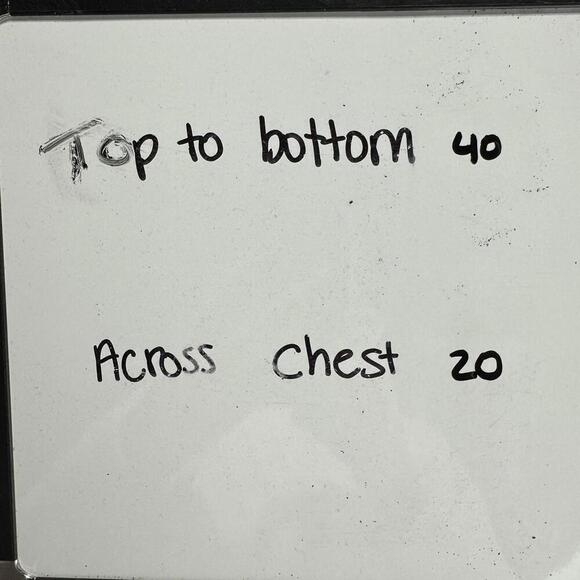 Top to bottom 40
Across Chest 20